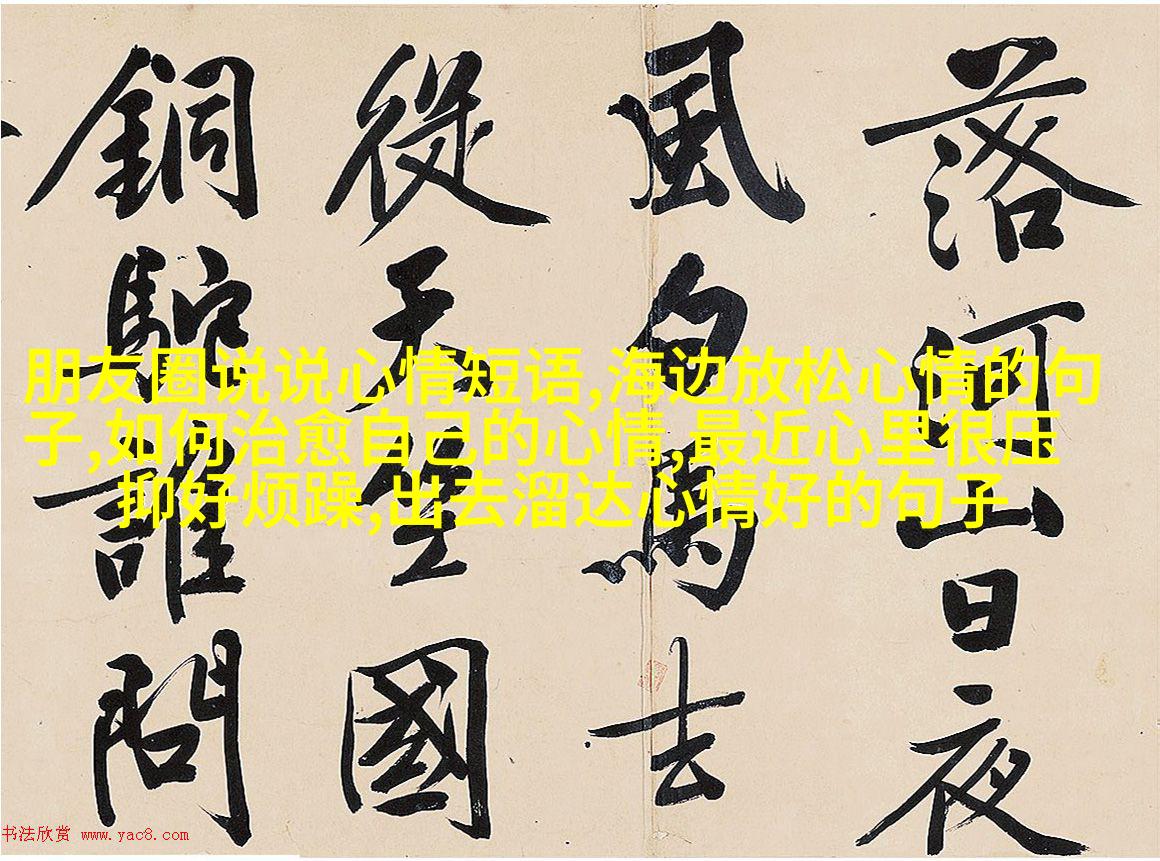 落河山日夜
風白馬去
從天竺國
銅駝誰問
朋友圈说说心情短语,海边放松心情的句
子,如何治愈自己的心情,最近心里很压
抑好烦躁,出去溜达心情好的句子
书法欣赏 www.yac8.com